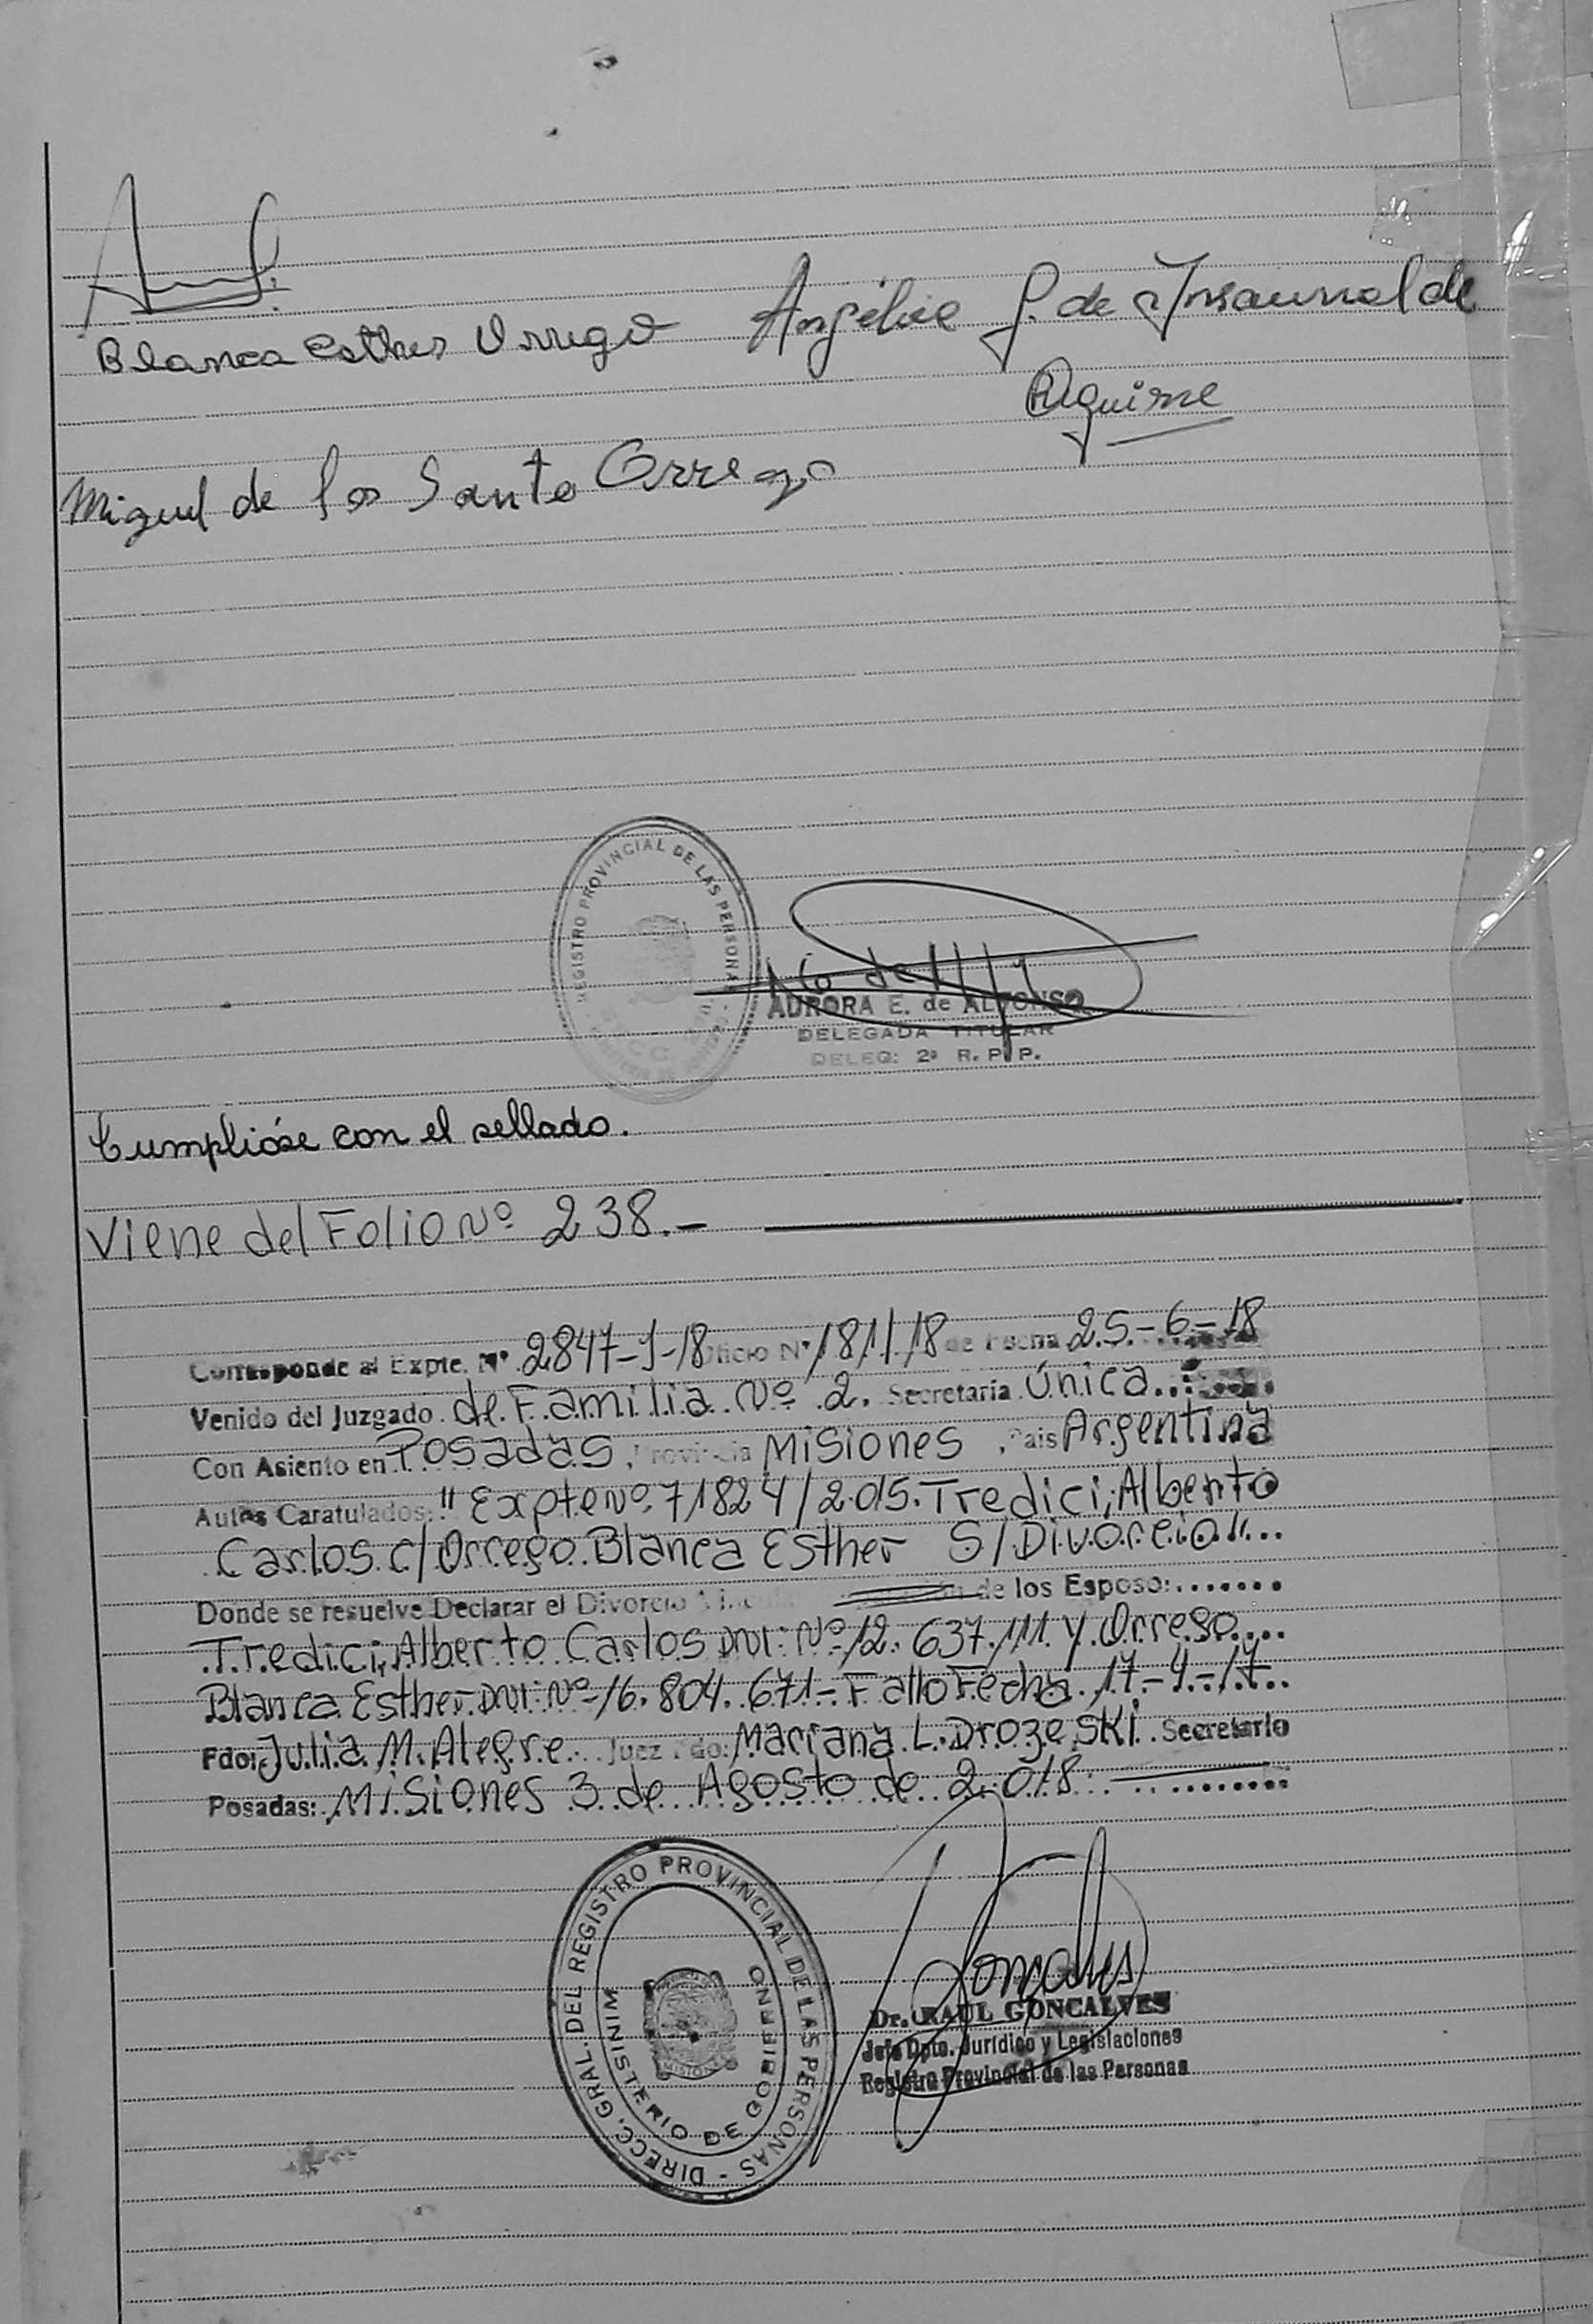 Blanca Esther Orrego Angélica G. de Insaurralde
Aguirre
Miguel de los Santo Orrego
REGISTRO PROVINCIAL DE LAS PERSONAS
AURORA E. de ALFONSO
DELEGADA TITULAR
DELEG: 2ª R. P. P.
Cumplióse con el sellado.
Viene del Folio Nº 238.-
Corresponde al Expte. Nº 2847-J-18 Oficio Nº 181/18 de Fecha 25.-6.-18
Venido del Juzgado de Familia Nº 2. Secretaría Única
Con Asiento en Posadas, Provincia Misiones, Pais Argentina
Autos Caratulados: "Expte Nº 71824/2.015. Tredici, Alberto
Carlos c/ Orrego Blanca Esther S/Divorcio"
Donde se resuelve Declarar el Divorcio de los Esposo:.......
Tredici, Alberto Carlos DNI: Nº 12.637.111 Y Orrego
Blanca Esther DNI: Nº 16.804.671- Fallo Fecha 17-4-17
Fdo: Julia M. Alegre Juez Fdo: Mariana L. Drozeski Secretario
Posadas: Misiones 3 de Agosto de 2.018
DIRECC. GRAL. DEL REGISTRO PROVINCIAL DE LAS PERSONAS -
MINISTERIO DE GOBIERNO
Dr. RAUL GONCALVES
Jefe Dpto. Jurídico y Legislaciones
Registro Provincial de las Personas